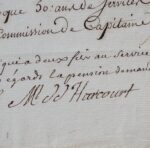 que 50: ans de services
Commission de Capitaine
qui a deux fils au service
egards la pension deman
M.al d'Harcourt